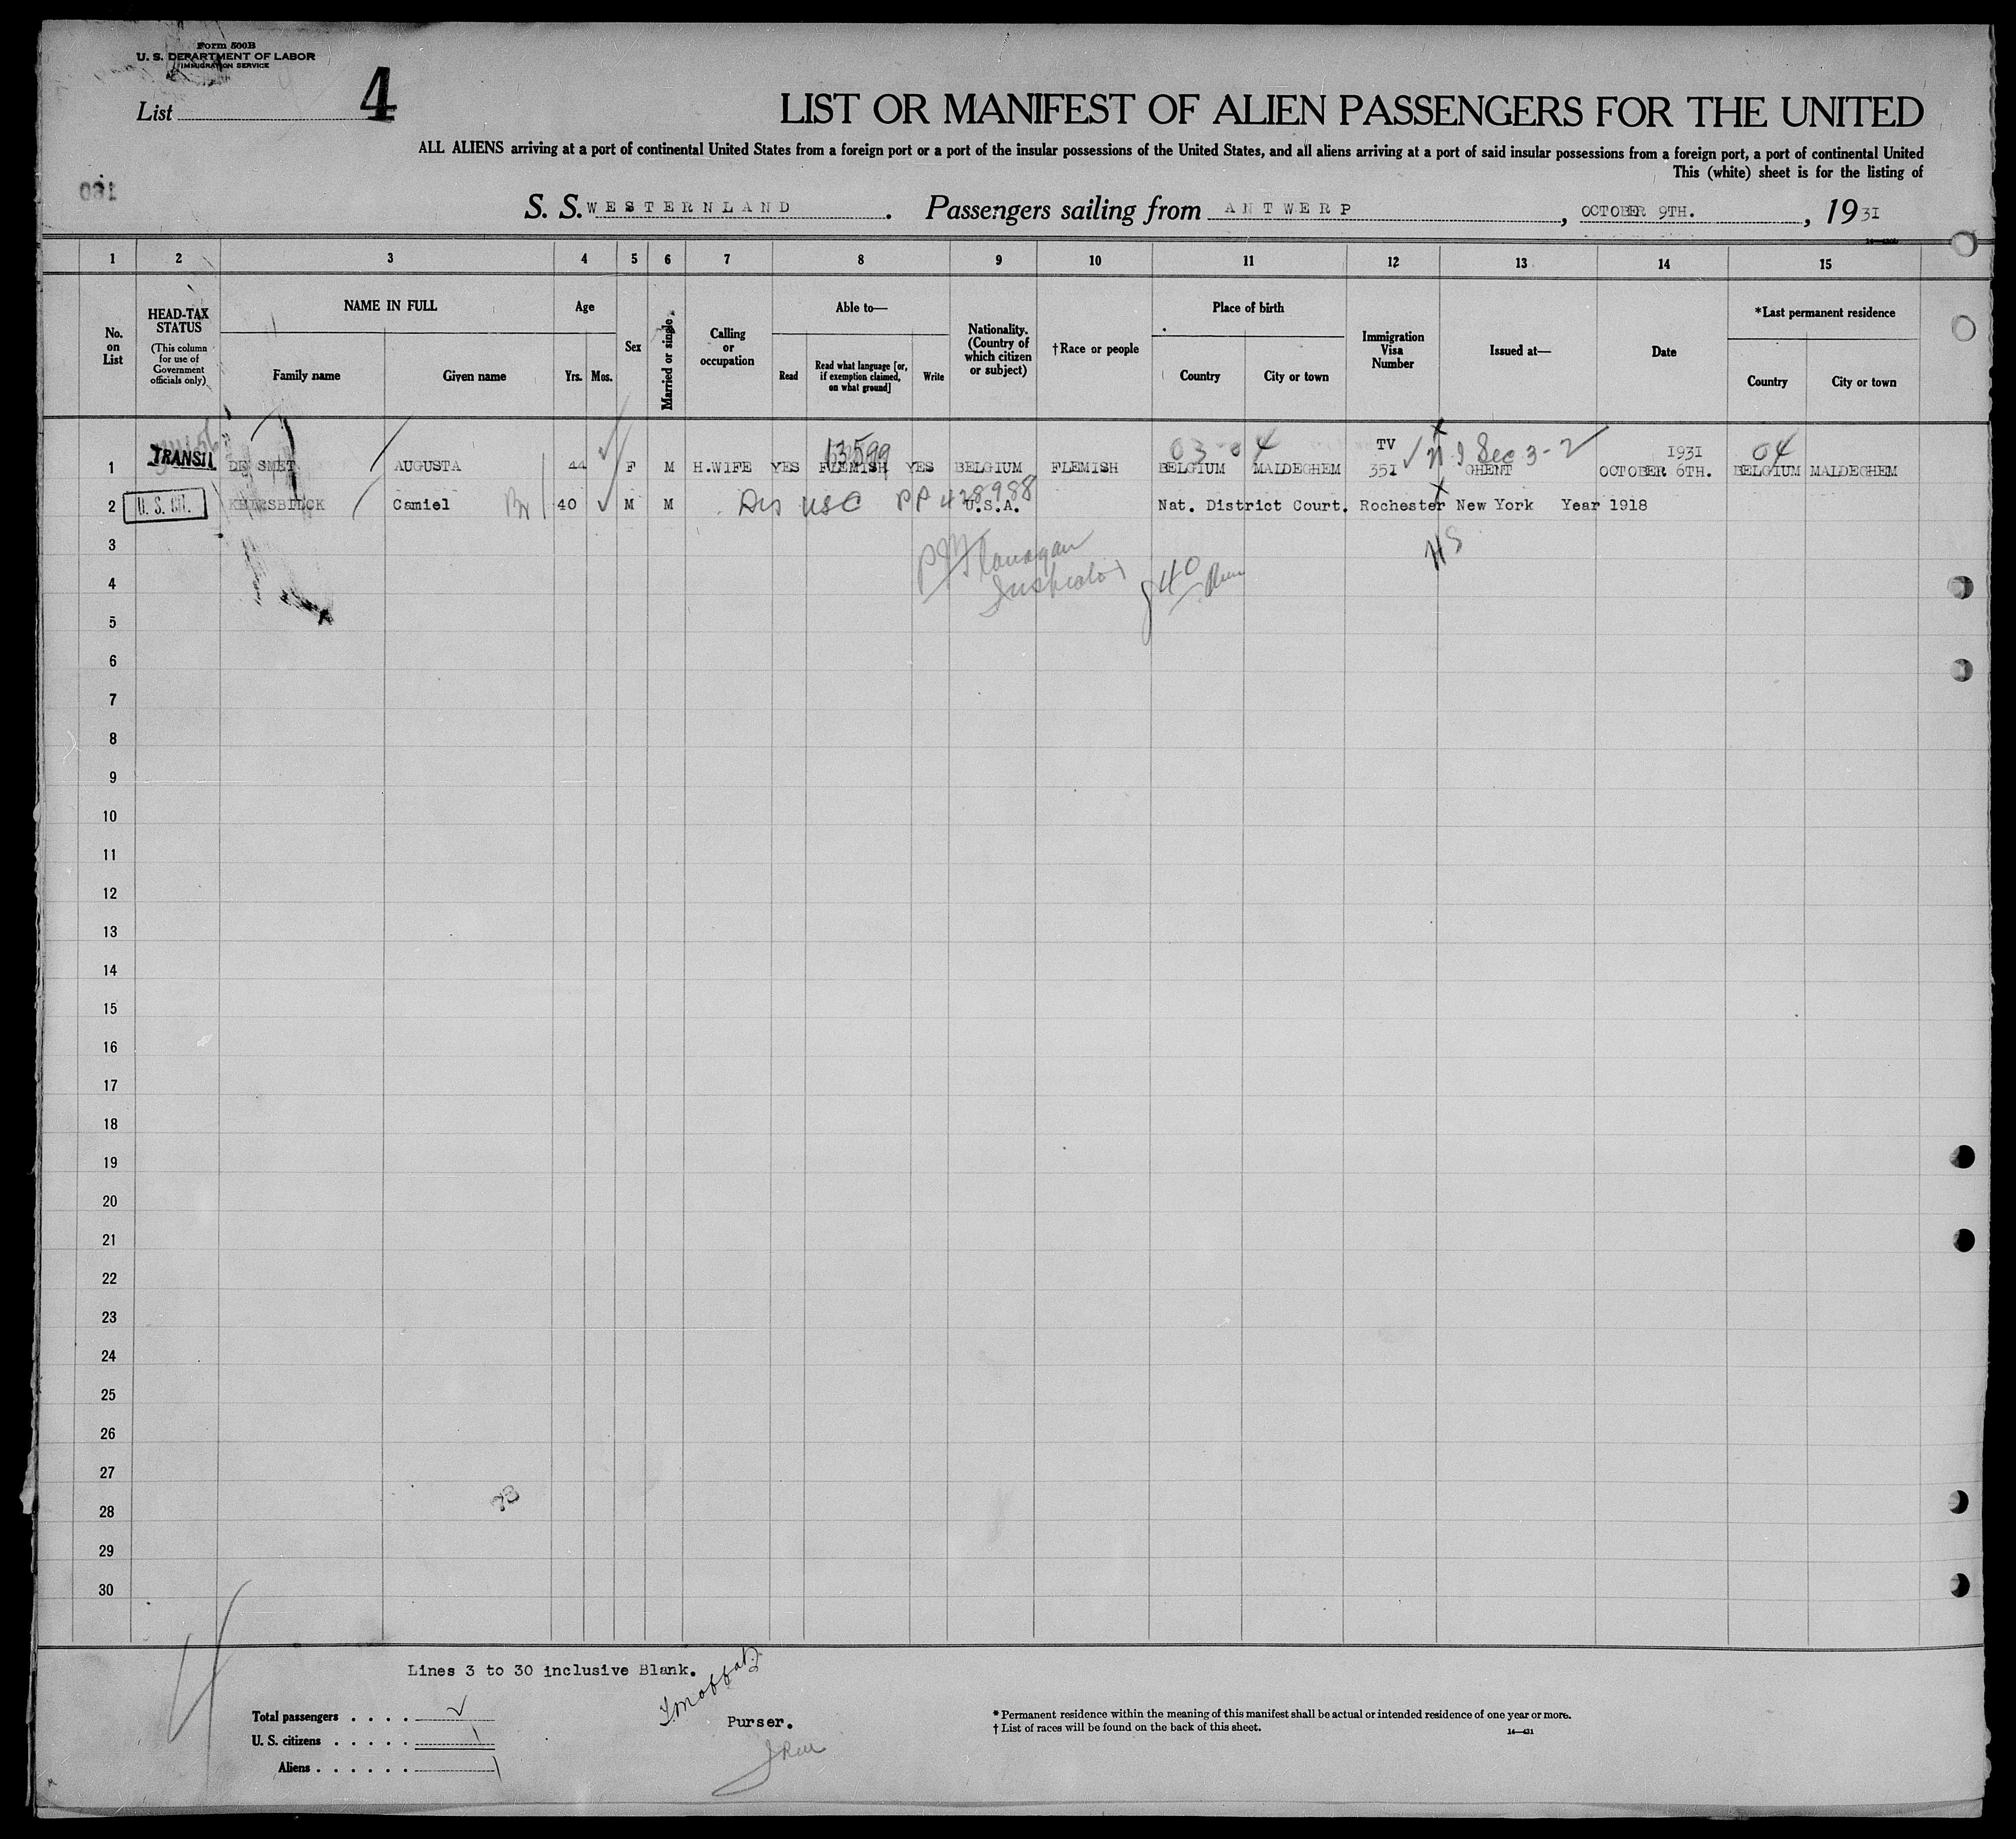 Form 500B
U. S. DEPARTMENT OF LABOR
IMMIGRATION SERVICE
List 4
LIST OR MANIFEST OF ALIEN PASSENGERS FOR THE UNITED
ALL ALIENS arriving at a port of continental United States from a foreign port or a port of the insular possessions of the United States, and all aliens arriving at a port of said insular possessions from a foreign port, a port of continental United
This (white) sheet is for the listing of
S. S. WESTERNLAND . Passengers sailing from ANTWERP , OCTOBER 9TH. , 1931
1 2 3 4 5 6 7 8 9 10 11 12 13 14 15
No. on List
HEAD-TAX STATUS
(This column for use of Government officials only)
NAME IN FULL
Family name Given name
Age
Yrs. Mos.
Sex
Married or single
Calling or occupation
Able to—
Read
Read what language [or, if exemption claimed, on what ground]
Write
Nationality. (Country of which citizen or subject)
†Race or people
Place of birth
Country City or town
Immigration Visa Number
Issued at—
Date
*Last permanent residence
Country City or town
13599 03-04 TV N I Sec 3-2 1931 04
1 TRANSIT DE SMET AUGUSTA 44 F M H.WIFE YES FLEMISH YES BELGIUM FLEMISH BELGIUM MALDEGHEM 351 GHENT OCTOBER 6TH. BELGIUM MALDEGHEM
2 U. S. CIT. Camiel 40 M M USC PP 428988 U.S.A. Nat. District Court. Rochester New York Year 1918
3
P J Flanagan
4
Inspector
5
6
7
8
9
10
11
12
13
14
15
16
17
18
19
20
21
22
23
24
25
26
27
28
29
30
Lines 3 to 30 inclusive Blank.
Total passengers . . . .
U. S. citizens . . . . . 1
Aliens . . . . . . 1
Purser.
* Permanent residence within the meaning of this manifest shall be actual or intended residence of one year or more.
† List of races will be found on the back of this sheet.
14—421